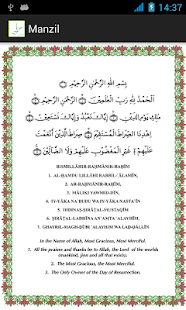 14:37
Manzil
بِسْمِ اللَّهِ الرَّحْمَٰنِ الرَّحِيمِ
الْحَمْدُ لِلَّهِ رَبِّ الْعَالَمِينَ الرَّحْمَٰنِ الرَّحِيمِ
مَالِكِ يَوْمِ الدِّينِ إِيَّاكَ نَعْبُدُ وَإِيَّاكَ نَسْتَعِينُ
اهْدِنَا الصِّرَاطَ الْمُسْتَقِيمَ صِرَاطَ الَّذِينَ أَنْعَمْتَ
عَلَيْهِمْ غَيْرِ الْمَغْضُوبِ عَلَيْهِمْ وَلَا الضَّالِّينَ
BISMILLÂHIR-RAḤMÂNIR-RAḤÎM
1. AL-ḤAMDU LILLÂHI RABBIL-'ÂLAMÎN,
2. AR-RAḤMÂNIR-RAḤÎM,
3. MÂLIKI YAWMID-DÎN,
4. IY-YÂKA NA'BUDU WA IY-YÂKA NASTA'ÎN
5. IHDINAṢ-ṢIRÂṬAL-MUSTAQÎM
6. ṢIRÂṬAL-LADHÎNA AN'AMTA 'ALAYHIM,
7. GHAYRIL-MAGHḌÛBI 'ALAYHIM WA LAḌ-ḌÂLLÎN
In the Name of Allah, Most Gracious, Most Merciful.
1. All the praises and thanks be to Allah, the Lord of the worlds
(mankind, jinn and all that exists).
2. The Most Gracious, the Most Merciful.
3. The Only Owner of the Day of Resurrection.